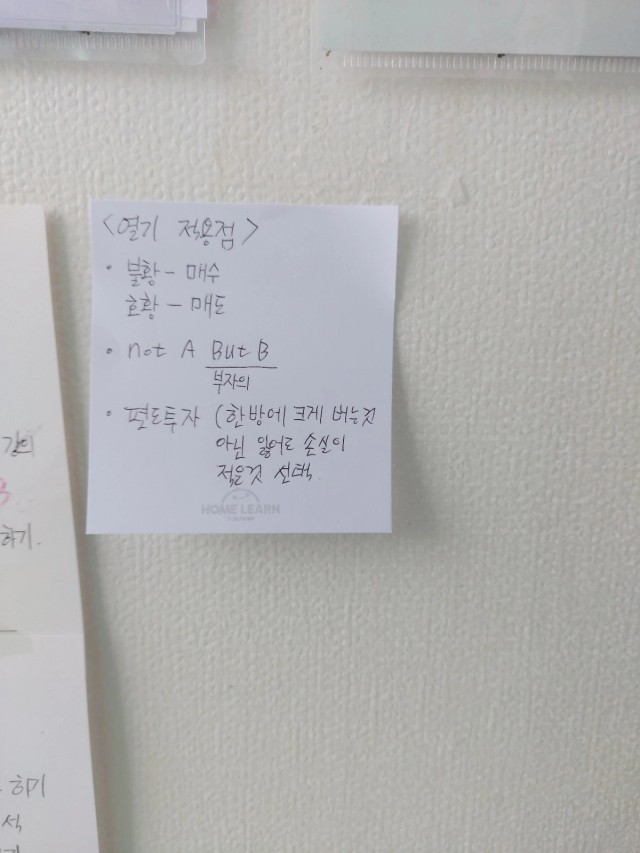 <열기 적용점>
• 불황 - 매수
호황 - 매도
• not A But B
부자의
• 편도투자 (한방에 크게 버는것
아닌 잃어도 손실이
적은것 선택.
HOME LEARN
하기.
하기
석